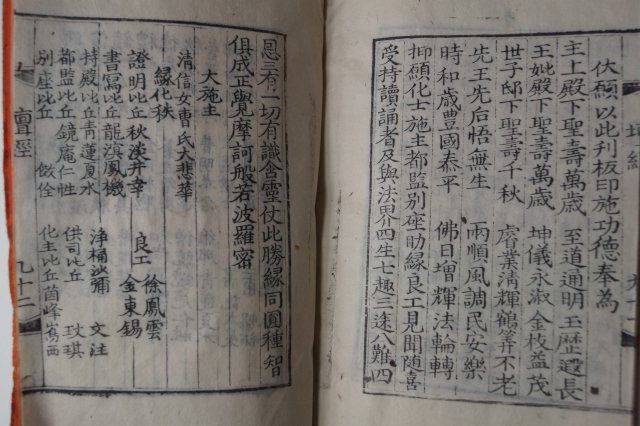 伏願以此刋板印施功德奉為
主上殿下聖壽萬歲 至道通明玉歷遐長
王妣殿下聖壽萬歲 坤儀永淑金枝益茂
世子邸下聖壽千秋 睿業淸輝鶴筭不老
先王先后悟無生 雨順風調民安樂
時和歲豊國泰平 佛日增輝法輪轉
抑願化士施主都監別座助緣良工見聞隨喜
受持讀誦者及與法界四生七趣三途八難四
恩三有一切有識含靈仗此勝緣同圓種智
俱成正覺摩訶般若波羅密
大施主
清信女曹氏大悲華
緣化秩
證明比丘秋淡井幸 良工 徐鳳雲
書寫比丘龍溟鳳機 金東錫
持殿比丘靑蓮夏水 淨桶沙彌 文注
都監比丘鏡庵仁性 供司比丘 玟琪
別座比丘 畋佺 化主比丘茵峰嵩西
經 九十二